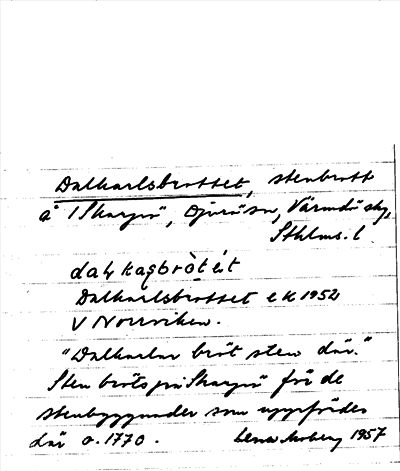 Dalkarlsbrottet, stenbrott
å 1 Skarpö, Djurö sn, Värmdö skg,
Sthlms. l.
Dalkarlsbrottet ek 1952
V Norrviken.
"Dalkarlar bröt sten där."
Sten bröts på Skarpö för de
stenbyggnader som uppfördes
där o. 1770.
1957